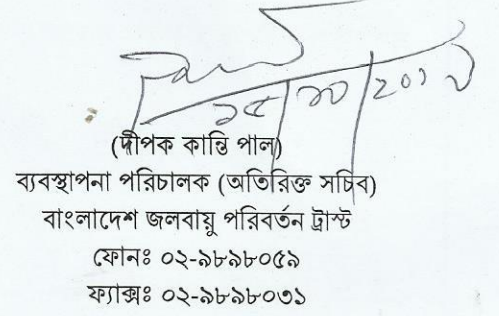 (দীপক কান্তি পাল)
ব্যবস্থাপনা পরিচালক (অতিরিক্ত সচিব)
বাংলাদেশ জলবায়ু পরিবর্তন ট্রাস্ট
ফোনঃ ০২-৯৮৯৮০৫৯
ফ্যাক্সঃ ০২-৯৮৯৮০৩১